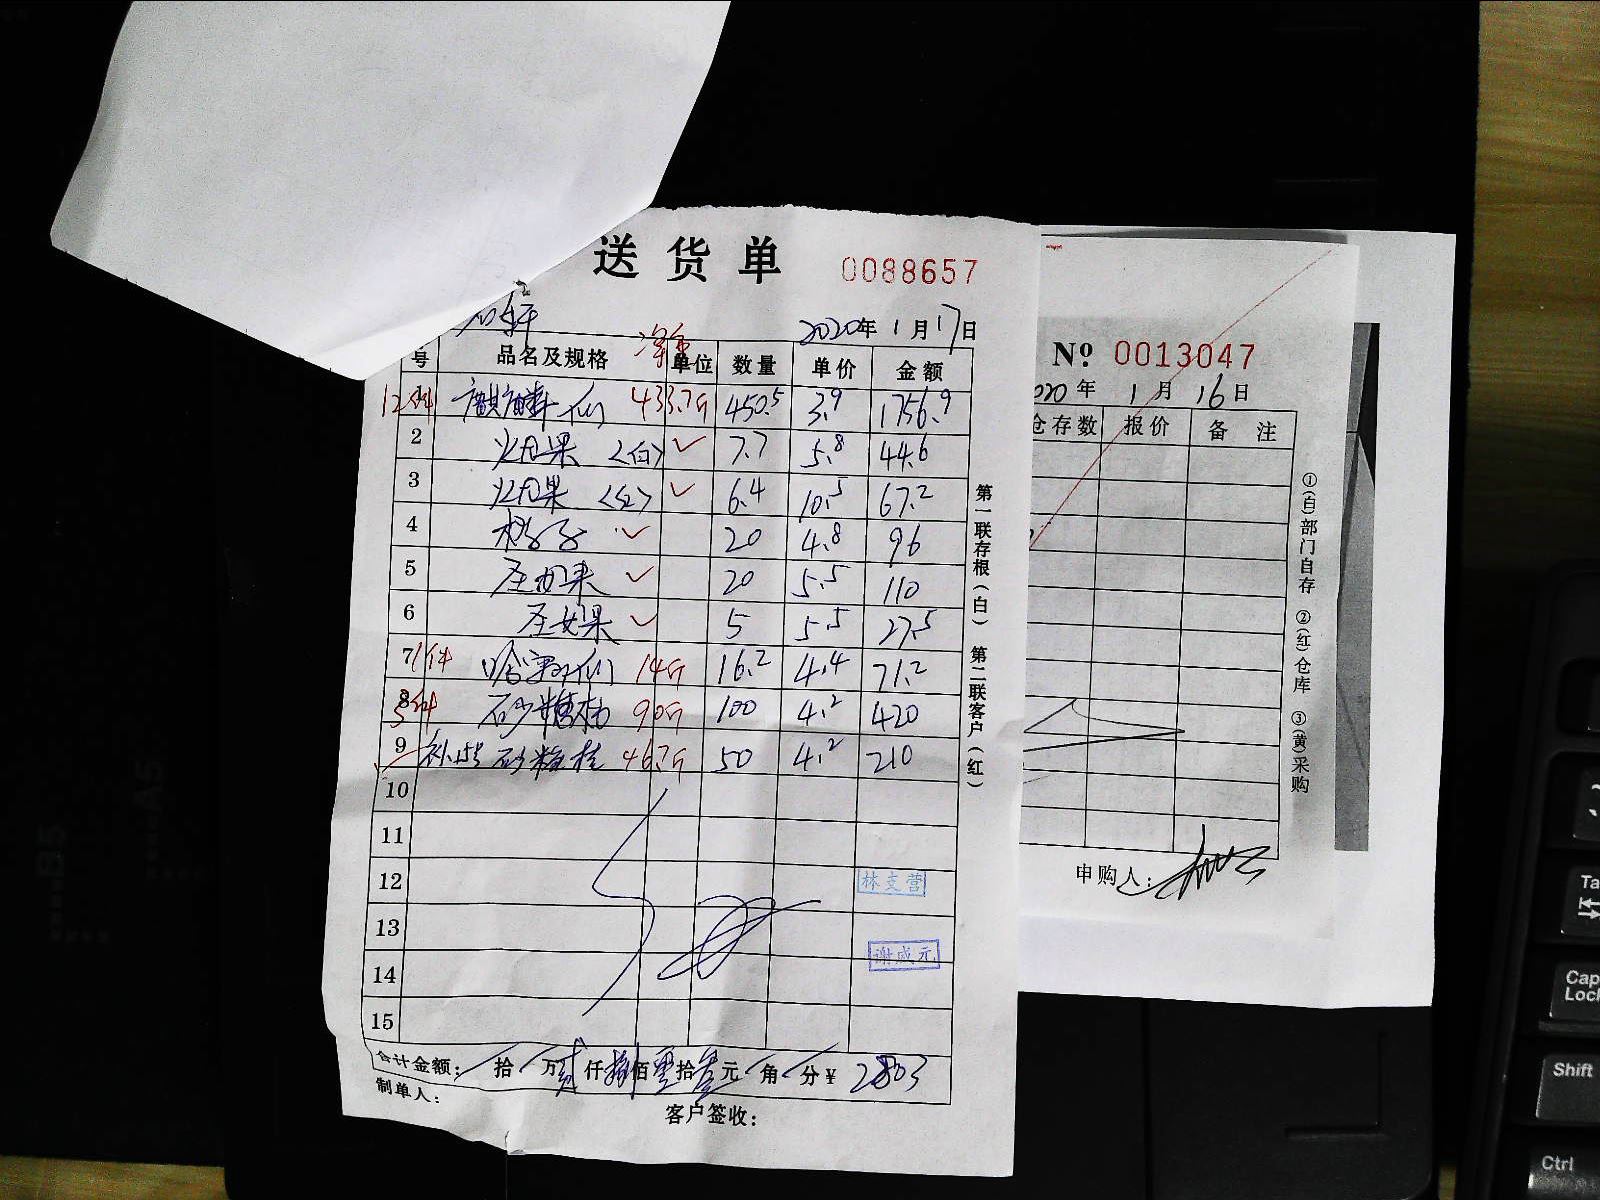 送货单 0088657
2020年1月17日
号 品名及规格 净重 单位 数量 单价 金额
1 12件 麒麟瓜 433.7斤 450.5 3.9 1756.9
2 火龙果 <白> ✓ 7.7 5.8 44.6
3 火龙果 <红> ✓ 6.4 10.5 67.2
4 ✓ 20 4.8 96
5 圣女果 ✓ 20 5.5 110
6 圣女果 ✓ 5 5.5 27.5
7 1件 哈密瓜 14斤 16.2 4.4 71.2
8 5件 砂糖桔 90斤 100 4.2 420
9 补15号 砂糖桔 46.7斤 50 4.2 210
10
11
12 林支营
13 谢成元
14
15
合计金额: 拾 万 贰 仟 捌 佰 零 拾 叁 元 角 分 ¥ 2803
制单人:
客户签收:
第一联存根(白) 第二联客户(红)
№ 0013047
020年1月16日
仓存数 报价 备注
①(白)部门自存 ②(红)仓库 ③(黄)采购
申购人:
B5
A5
Caps
Lock
Shift
Ctrl